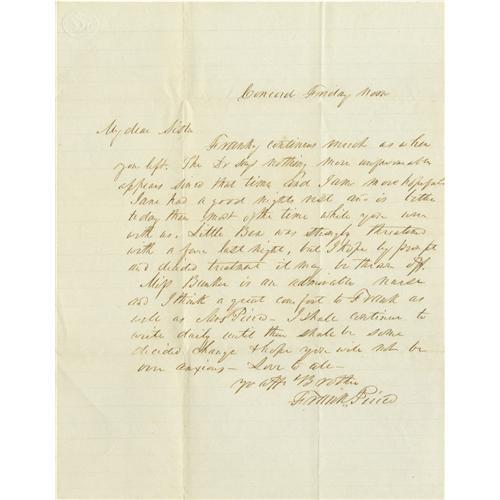 Concord Friday Noon
My dear Sister
Franky continues much as when
you left. The Dr says nothing more unfavorable
appears since that time and I am more hopeful
Jane had a good nights rest and is better
today than most of the time while you were
with us. Little Ben was strongly threatened
with a fever last night, but I hope by prompt
and decided treatment it may be thrown off.
Miss Bunker is an admirable nurse
and I think a great comfort to Frank as
well as Mrs Pierce - I shall continue to
write daily until there shall be some
decided change & hope you will not be
over anxious - Love to all -
Yr aff. Brother
Frank. Pierce